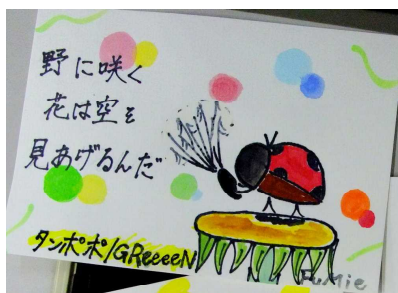 野に咲く
花は空を
見あげるんだ
タンポポ/GReeeeN
Fumie